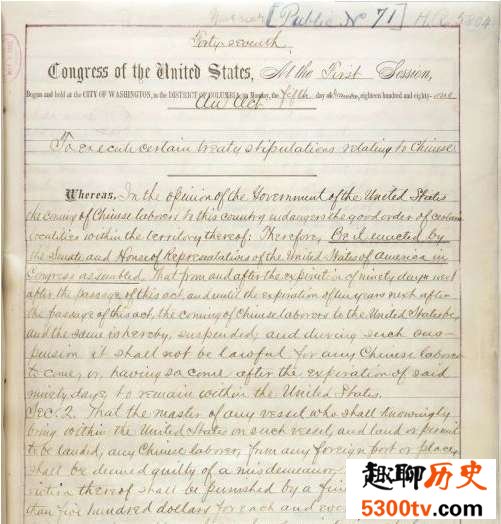 [Public No 71] H.R. 5804
Forty-seventh
Congress of the United States, At the First Session,
Begun and held at the CITY OF WASHINGTON, in the DISTRICT OF COLUMBIA, on Monday, the fifth day of December, eighteen hundred and eighty-one
An Act
To execute certain treaty stipulations relating to Chinese
Whereas, In the opinion of the Government of the United States
the coming of Chinese laborers to this country endangers the good order of certain
localities within the territory thereof: Therefore, Be it enacted by
the Senate and House of Representatives of the United States of America in
Congress assembled, That from and after the expiration of ninety days next
after the passage of this act, and until the expiration of ten years next after
the passage of this act, the coming of Chinese laborers to the United States be,
and the same is hereby, suspended; and during such sus-
pension it shall not be lawful for any Chinese laborer
to come, or, having so come after the expiration of said
ninety days, to remain within the United States.
Sec. 2. That the master of any vessel who shall knowingly
bring within the United States on such vessel, and land or permit
to be landed, any Chinese laborer, from any foreign port or place,
shall be deemed guilty of a misdemeanor,
thereof shall be punished by a fine
than five hundred dollars for each and every
趣聊历史
5300tv.com